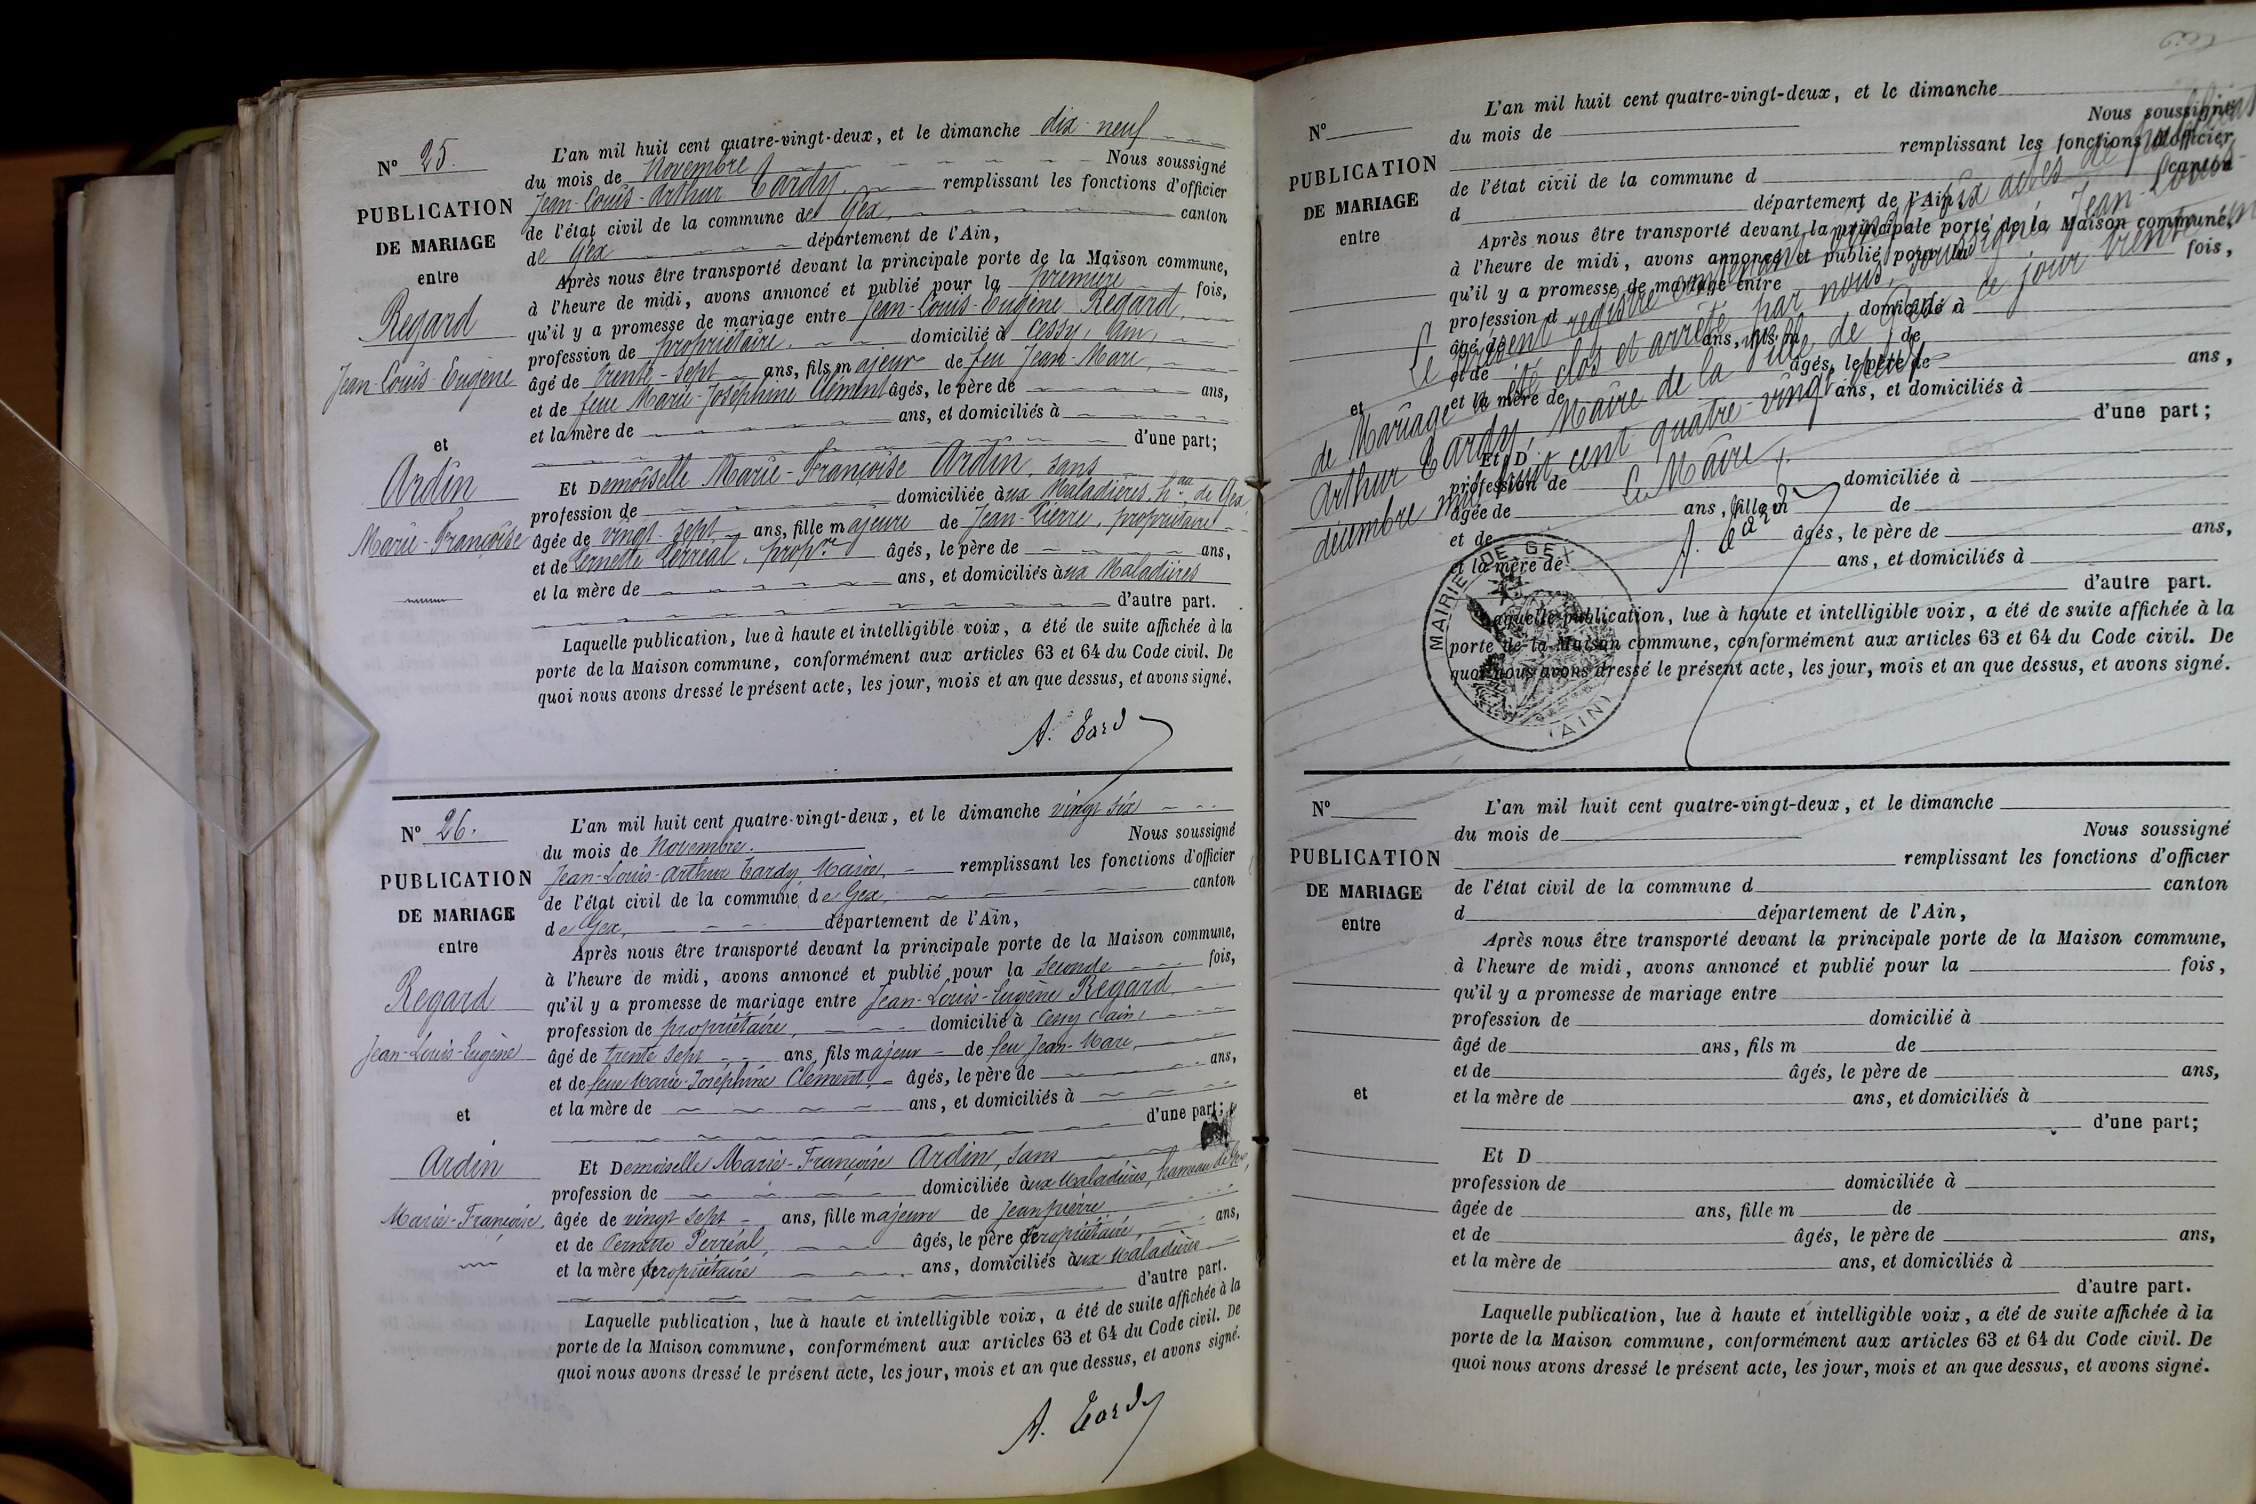 N° 25.
PUBLICATION
DE MARIAGE
entre
Regard
Jean-Louis-Eugène
et
Ardin
Marie-Françoise
L'an mil huit cent quatre-vingt-deux, et le dimanche dix neuf
du mois de Novembre Nous soussigné
Jean-Louis-Arthur Tardy, remplissant les fonctions d'officier
de l'état civil de la commune de Gex, canton
de Gex département de l'Ain,
Après nous être transporté devant la principale porte de la Maison commune,
à l'heure de midi, avons annoncé et publié pour la première fois,
qu'il y a promesse de mariage entre Jean-Louis-Eugène Regard,
profession de propriétaire, domicilié à Cessy, Ain,
âgé de trente-sept ans, fils majeur de feu Jean-Marc,
et de feue Marie-Joséphine Clément âgés, le père de ans,
et la mère de ans, et domiciliés à
d'une part;
Et Demoiselle Marie-Françoise Ardin, sans
profession de domiciliée aux Maladières, hau de Gex
âgée de vingt-sept ans, fille majeure de Jean-Pierre, propriétaire
et de Pernette Perréal, propre âgés, le père de ans,
et la mère de ans, et domiciliés aux Maladières
d'autre part.
Laquelle publication, lue à haute et intelligible voix, a été de suite affichée à la
porte de la Maison commune, conformément aux articles 63 et 64 du Code civil. De
quoi nous avons dressé le présent acte, les jour, mois et an que dessus, et avons signé.
A. Tardy
N° 26.
PUBLICATION
DE MARIAGE
entre
Regard
Jean-Louis-Eugène
et
Ardin
Marie-Françoise,
L'an mil huit cent quatre-vingt-deux, et le dimanche vingt six
du mois de Novembre. Nous soussigné
Jean-Louis-Arthur Tardy, Maire, remplissant les fonctions d'officier
de l'état civil de la commune de Gex, canton
de Gex, département de l'Ain,
Après nous être transporté devant la principale porte de la Maison commune,
à l'heure de midi, avons annoncé et publié pour la seconde fois,
qu'il y a promesse de mariage entre Jean-Louis-Eugène Regard
profession de propriétaire, domicilié à Cessy (Ain)
âgé de trente sept ans, fils majeur de feu Jean-Marc,
et de feue Marie-Joséphine Clément, âgés, le père de ans,
et la mère de ans, et domiciliés à
d'une part;
Et Demoiselle Marie-Françoise Ardin, sans
profession de domiciliée aux Maladières, hameau de Gex,
âgée de vingt sept ans, fille majeure de Jean pierre
et de Pernette Perréal, âgés, le père propriétaire, ans,
et la mère propriétaire ans, domiciliés aux Maladières
d'autre part.
Laquelle publication, lue à haute et intelligible voix, a été de suite affichée à la
porte de la Maison commune, conformément aux articles 63 et 64 du Code civil. De
quoi nous avons dressé le présent acte, les jour, mois et an que dessus, et avons signé.
A. Tardy
N°
PUBLICATION
DE MARIAGE
entre
et
L'an mil huit cent quatre-vingt-deux, et le dimanche
du mois de Nous soussigné
remplissant les fonctions d'officier
de l'état civil de la commune d canton
d département de l'Ain,
Après nous être transporté devant la principale porte de la Maison commune,
à l'heure de midi, avons annoncé et publié pour la fois,
qu'il y a promesse de mariage entre
profession d domicilié à
âgé de ans, fils m de
et de âgés, le père de ans,
et la mère de ans, et domiciliés à
d'une part;
Et D
profession de domiciliée à
âgée de ans, fille m de
et de âgés, le père de ans,
et la mère de ans, et domiciliés à
d'autre part.
Laquelle publication, lue à haute et intelligible voix, a été de suite affichée à la
porte de la Maison commune, conformément aux articles 63 et 64 du Code civil. De
quoi nous avons dressé le présent acte, les jour, mois et an que dessus, et avons signé.
Le présent registre contenant vingt six actes de publications
de Mariage a été clos et arrêté par nous soussigné Jean-Louis
Arthur Tardy, Maire de la Ville de Gex ce jour trente un
décembre mil huit cent quatre-vingt deux.
Le Maire,
A. Tardy
MAIRIE DE GEX
(AIN)
N°
PUBLICATION
DE MARIAGE
entre
et
L'an mil huit cent quatre-vingt-deux, et le dimanche
du mois de Nous soussigné
remplissant les fonctions d'officier
de l'état civil de la commune d canton
d département de l'Ain,
Après nous être transporté devant la principale porte de la Maison commune,
à l'heure de midi, avons annoncé et publié pour la fois,
qu'il y a promesse de mariage entre
profession de domicilié à
âgé de ans, fils m de
et de âgés, le père de ans,
et la mère de ans, et domiciliés à
d'une part;
Et D
profession de domiciliée à
âgée de ans, fille m de
et de âgés, le père de ans,
et la mère de ans, et domiciliés à
d'autre part.
Laquelle publication, lue à haute et intelligible voix, a été de suite affichée à la
porte de la Maison commune, conformément aux articles 63 et 64 du Code civil. De
quoi nous avons dressé le présent acte, les jour, mois et an que dessus, et avons signé.